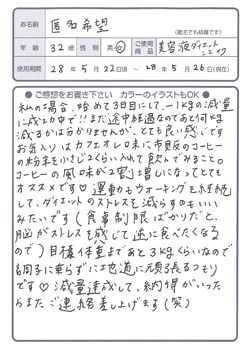 お名前 匿名希望
(匿名でも結構です)
年齢 32歳 性別 男・女 ご使用商品 美容液ダイエットシェイク
使用期間 28年5月22日頃〜28年5月26日(現在)
●ご感想をお書き下さい カラーのイラストもOK●
私の場合、始めて3日目にして、-1kgの減量
に成功中です!!まだ途中経過なのであと何kg
減るかは分かりませんが、とても良い感じです
お気入りはカフェオレ味に市販のコーヒー
の粉末を小さじ2くらい入れて飲んでみること。
コーヒーの風味が2割増しになってとても
オススメです♡運動もウォーキングを継続
して、ダイエットのストレスを減らすのもいい
みたいです(食事制限ばかりだと、
脳がストレスを感じて逆に食べたくなる
ので)目標体重まであと3kgくらいなので
周子に乗らずに地道に頑張るつもり
です♡減量達成して、納得がいった
らまたご連絡差し上げます(笑)